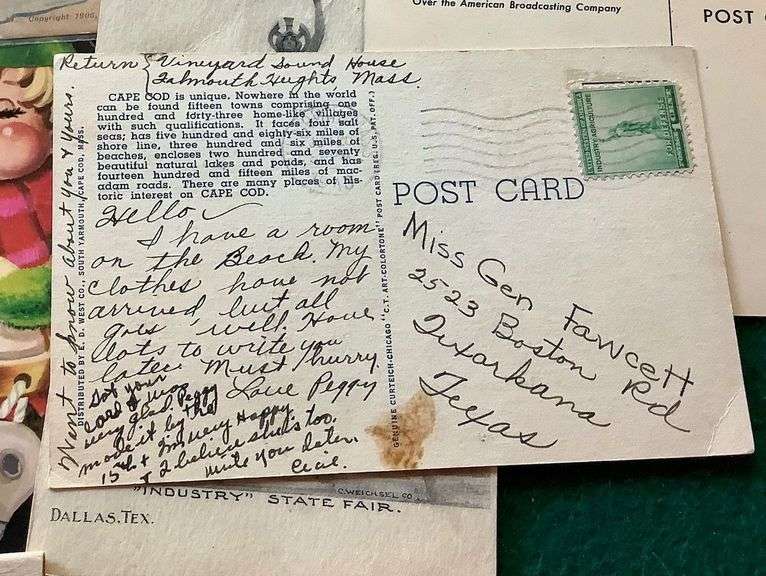 Copyright 1906,
Over the American Broadcasting Company
POST
Return { Vineyard Sound House
Falmouth Heights Mass.
CAPE COD is unique. Nowhere in the world
can be found fifteen towns comprising one
hundred and forty-three home-like villages
with such qualifications. It faces four salt
seas; has five hundred and eighty-six miles of
shore line, three hundred and six miles of
beaches, encloses two hundred and seventy
beautiful natural lakes and ponds, and has
fourteen hundred and fifteen miles of mac-
adam roads. There are many places of his-
toric interest on CAPE COD.
Hello
I have a room
on the Beach. My
clothes have not
arrived but all
goes well. Have
lots to write you
later. Must hurry.
Love Peggy
Got your
card & was
very glad. Peggy
made it by the
15th + I'm very Happy
+ I believe she's too.
Write you later.
Cecie.
Want to know about you & yours.
DISTRIBUTED BY E. D. WEST CO., SOUTH YARMOUTH, CAPE COD, MASS.
GENUINE CURTEICH-CHICAGO "C.T. ART-COLORTONE" POST CARD (REG. U.S. PAT. OFF.)
POST CARD
INDUSTRY AGRICULTURE
1¢
Miss Gen Fawcett
2523 Boston Rd
Texarkana
Texas
"INDUSTRY" STATE FAIR.
C. WEICHSEL CO.
DALLAS, TEX.